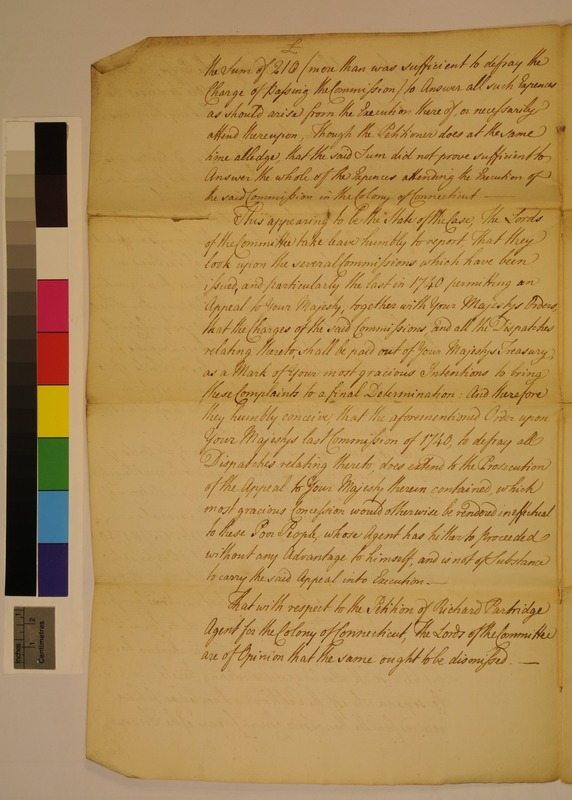 £
the Sum of 210 (more than was sufficient to defray the
Charge of Passing the Commission) to Answer all such Expences
as should arise from the Execution thereof, or necessarily
attend thereupon, Though the Petitioner does at the same
time alledge, that the said Sum did not prove sufficient to
Answer the whole of the Expences attending the Execution of
the said Commission in the Colony of Connecticut —
This appearing to be the State of the Case, The Lords
of the Committee take leave humbly to report That they
look upon the several Commissions which have been
issued, and particularly the last in 1740 permitting an
Appeal to Your Majesty, together with Your Majestys Orders,
that the Charges of the said Commissions, and all the Dispatches
relating thereto, shall be paid out of Your Majestys Treasury,
as a Mark of Your most gracious Intentions to bring
these Complaints to a final Determination: And therefore
they humbly conceive, that the aforementioned Order upon
Your Majestys last Commission of 1740, to defray all
Dispatches relating thereto, does extend to the Prosecution
of the Appeal to Your Majesty therein contained, which
most gracious Concession would otherwise be rendered ineffectual
to these Poor People, whose Agent has hitherto proceeded
without any Advantage to himself, and is not of Substance
to carry the said Appeal into Execution. —
That with respect to the Petition of Richard Partridge
Agent for the Colony of Connecticut, The Lords of the Committee
are of Opinion that the same ought to be dismissed. —
inches
1
2
Centimetres